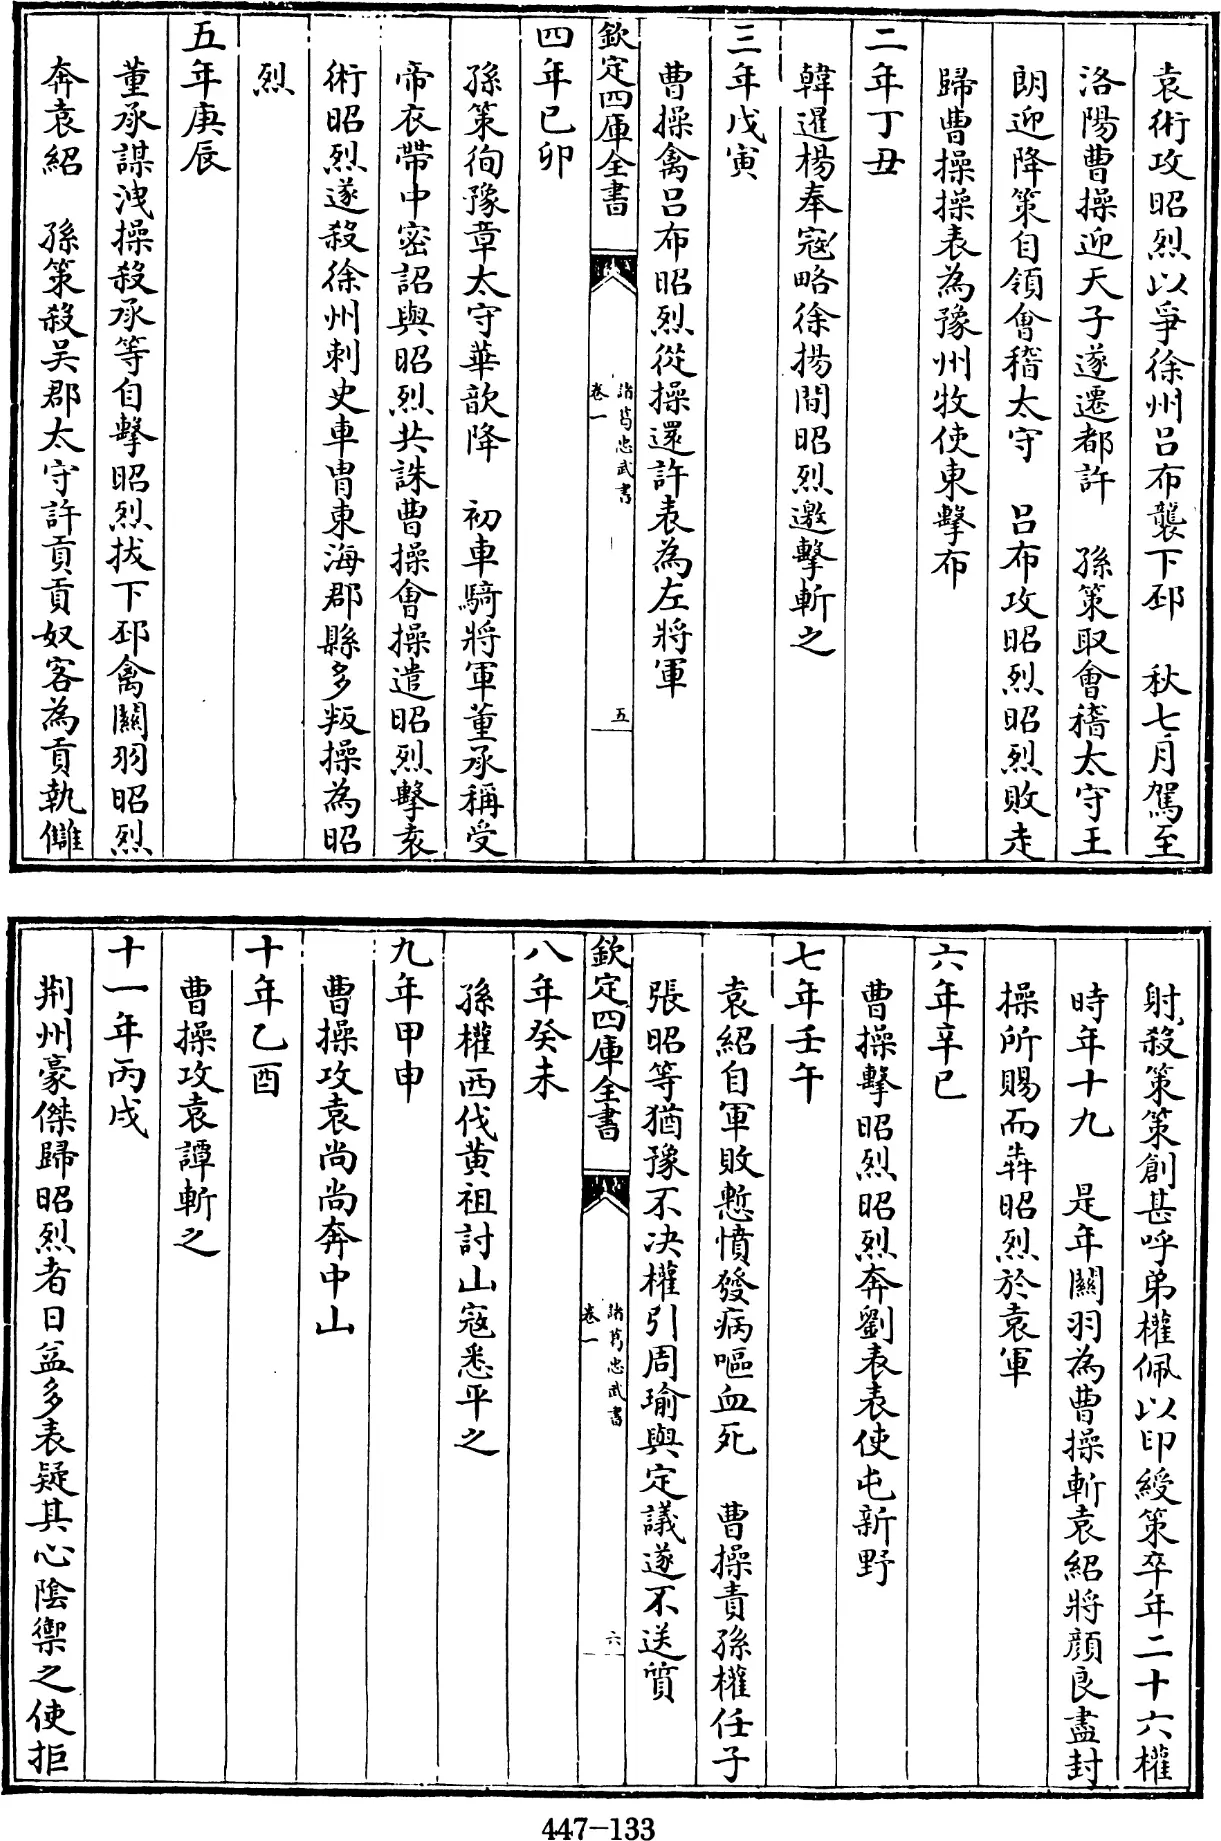 袁術攻昭烈以爭徐州呂布襲下邳　秋七月駕至
洛陽曹操迎天子遂遷都許　孫策取會稽太守王
朗迎降策自領會稽太守　呂布攻昭烈昭烈敗走
歸曹操操表為豫州牧使東擊布
二年丁丑
韓暹楊奉寇略徐揚間昭烈邀擊斬之
三年戊寅
曹操禽呂布昭烈從操還許表為左將軍
欽定四庫全書
諸葛忠武書
卷一
五
四年已卯
孫策徇豫章太守華歆降　初車騎將軍董承稱受
帝衣帶中密詔與昭烈共誅曹操會操遣昭烈擊袁
術昭烈遂殺徐州刺史車胄東海郡縣多叛操為昭
烈
五年庚辰
董承謀洩操殺承等自擊昭烈拔下邳禽關羽昭烈
奔袁紹　孫策殺吴郡太守許貢貢奴客為貢執讎
射殺策策創甚呼弟權佩以印綬策卒年二十六權
時年十九　是年關羽為曹操斬袁紹將顔良盡封
操所賜而犇昭烈於袁軍
六年辛巳
曹操擊昭烈昭烈奔劉表表使屯新野
七年壬午
袁紹自軍敗慙憤發病嘔血死　曹操責孫權任子
張昭等猶豫不决權引周瑜與定議遂不送質
欽定四庫全書
諸葛忠武書
卷一
六
八年癸未
孫權西伐黄祖討山寇悉平之
九年甲申
曹操攻袁尚尚奔中山
十年乙酉
曹操攻袁譚斬之
十一年丙戌
荆州豪傑歸昭烈者日益多表疑其心陰禦之使拒
447-133